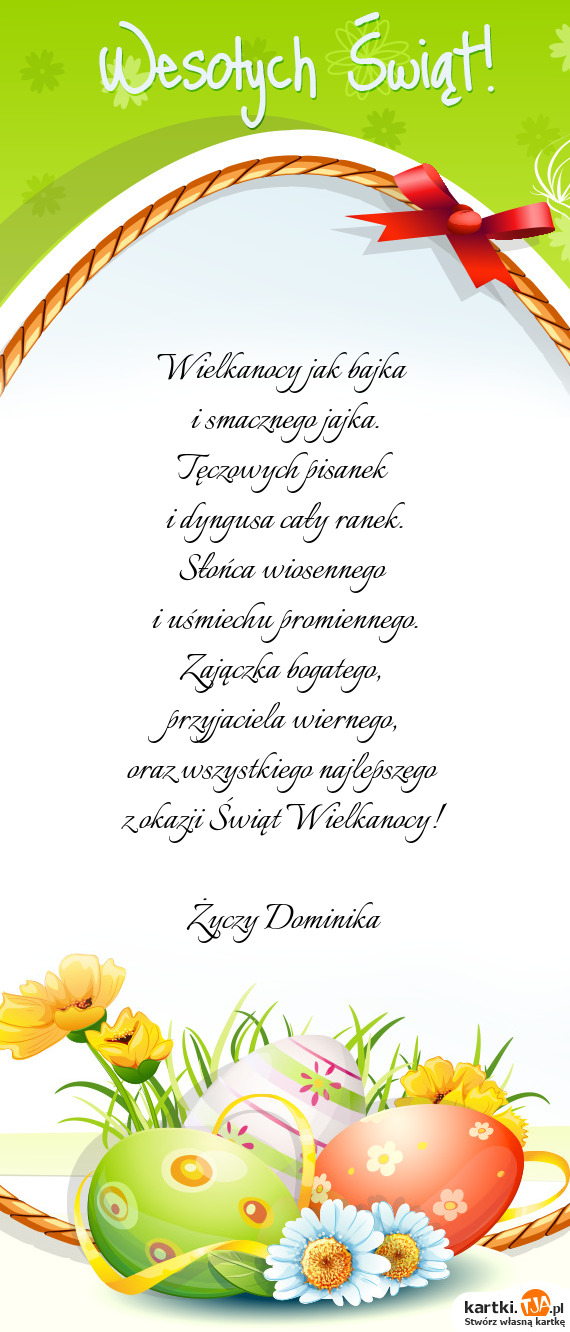 Wesołych Świąt!
Wielkanocy jak bajka
i smacznego jajka.
Tęczowych pisanek
i dyngusa cały ranek.
Słońca wiosennego
i uśmiechu promiennego.
Zajączka bogatego,
przyjaciela wiernego,
oraz wszystkiego najlepszego
z okazji Świąt Wielkanocy!
Życzy Dominika
kartki.TJA.pl
Stwórz własną kartkę